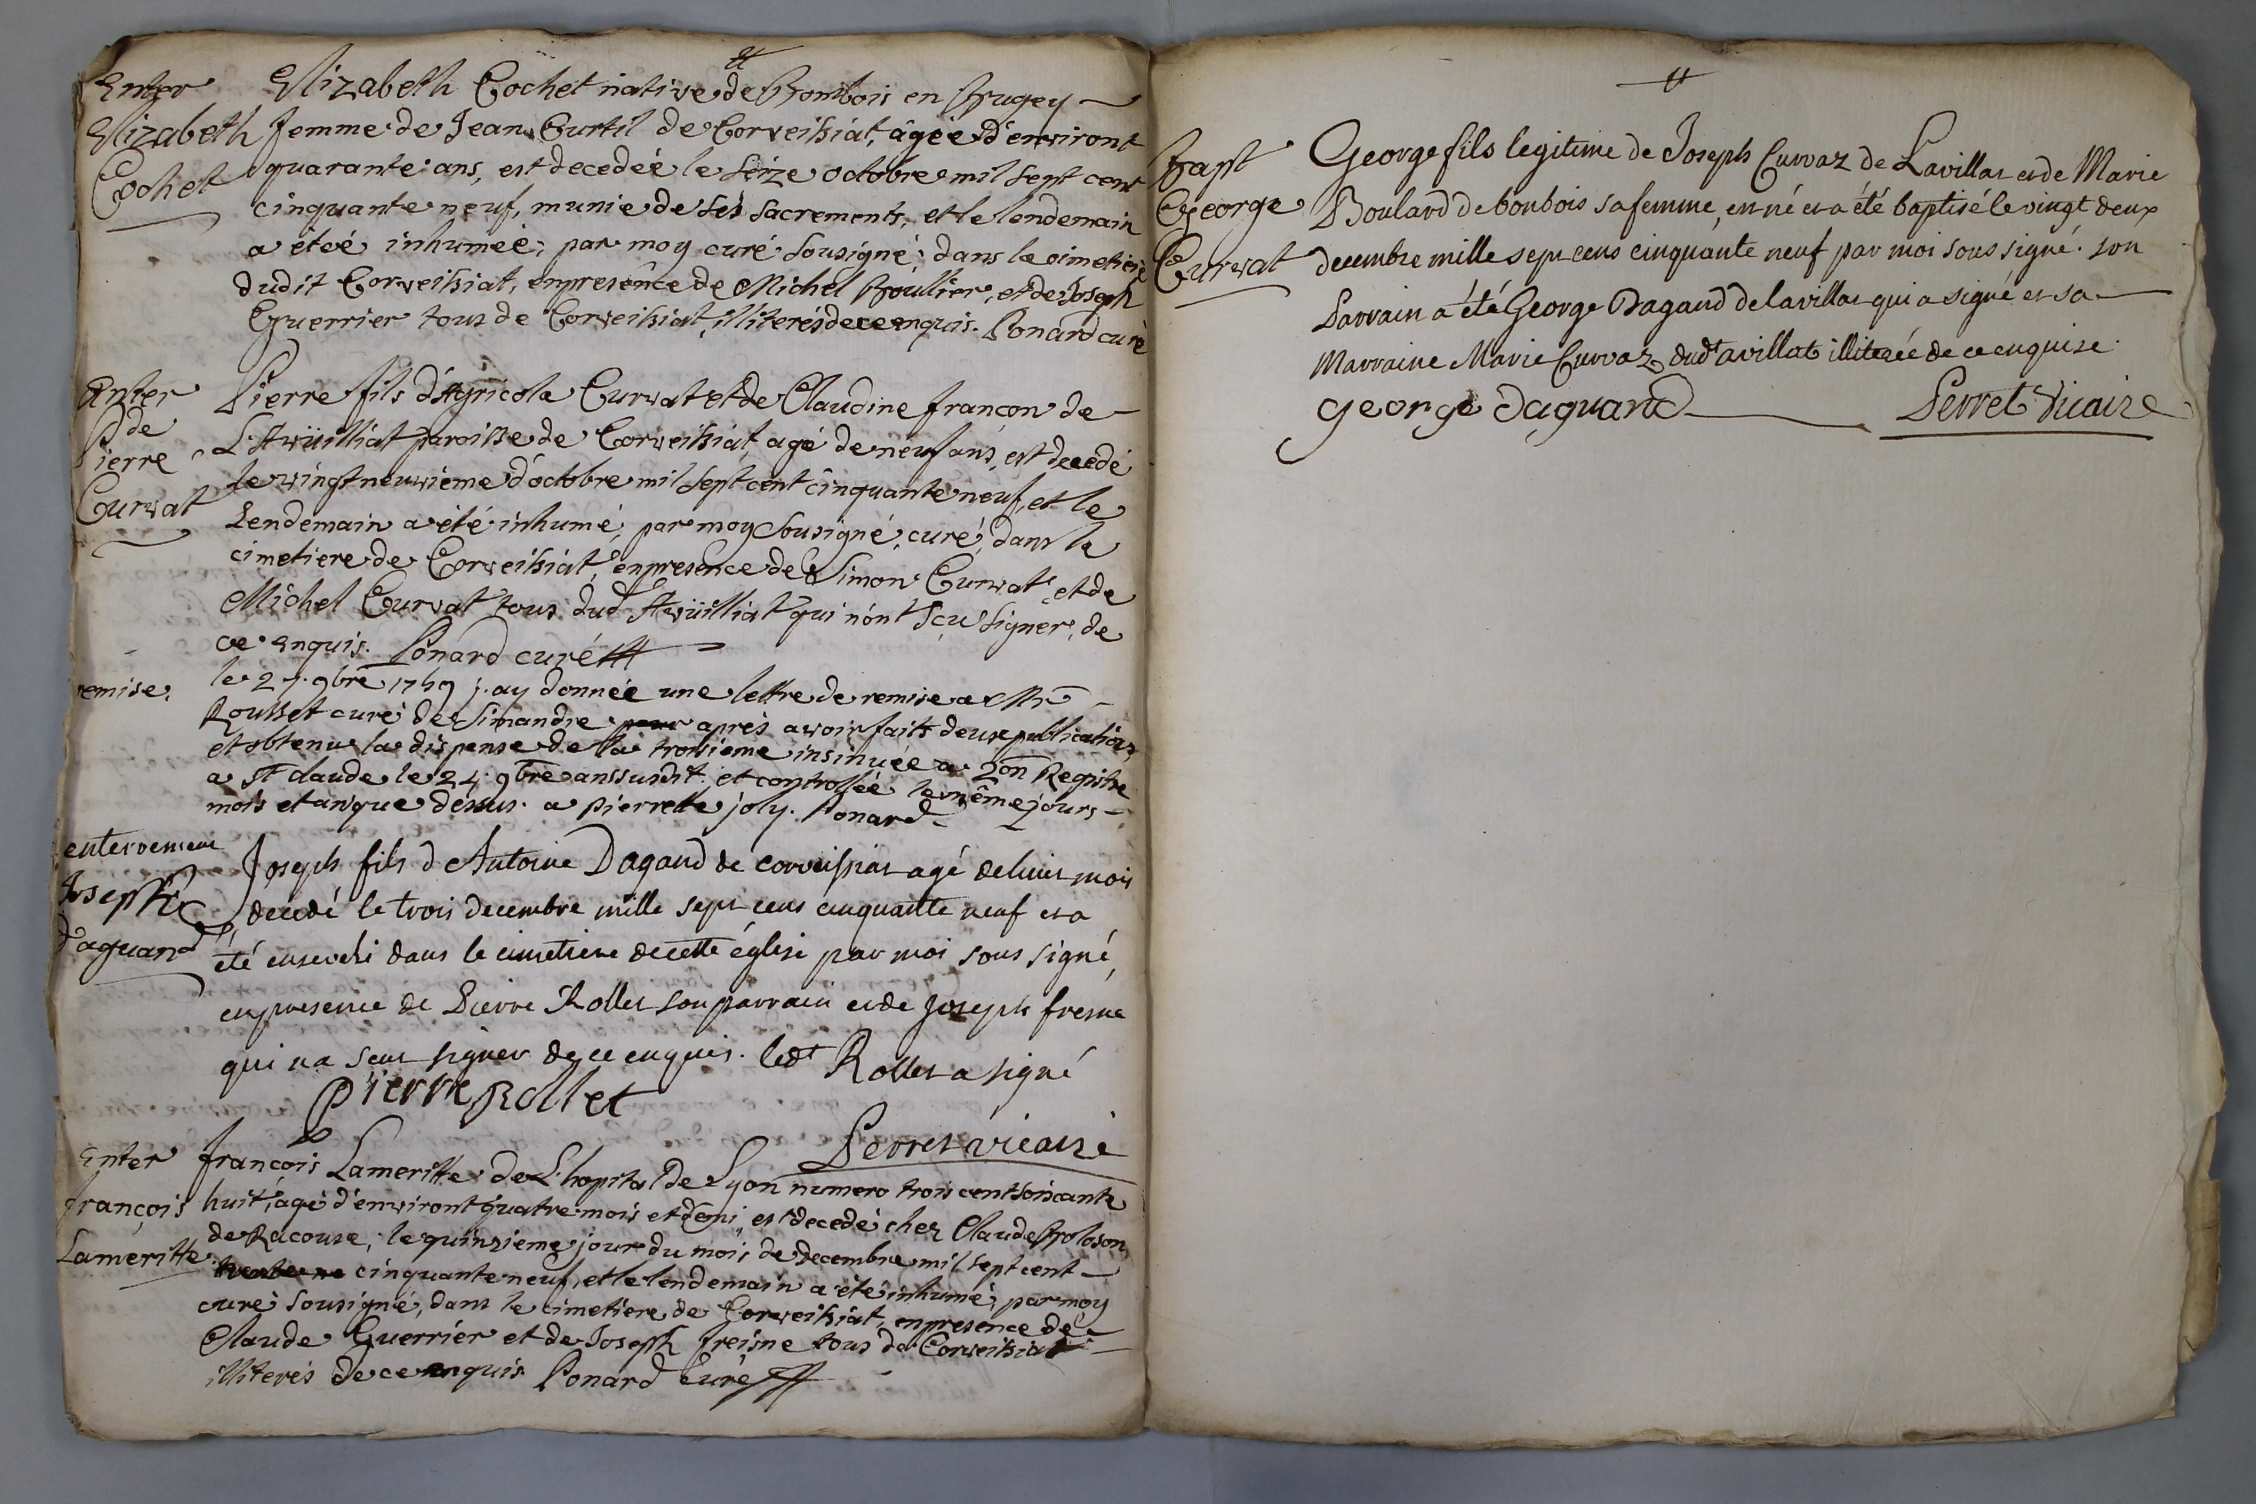 Enter
Elizabeth
Cochet
Elizabeth Cochet native de Bombois en Bugey
femme de Jean Curtil de Corveissiat, âgée d'environt
quarante ans, est decedée le séize octobre mil sept cent
cinquante neuf, munie de ses sacrements, et le lendemain
a étée inhumée, par moy curé sousigné, dans le cimetiere
dudit Corveissiat, en presênce de Michel Boullier, et de Joseph
Guerrier tous de Corveissiat, illiterés de ce enquis. Ponard curé
Enter
de
Pierre
Curvat
Pierre fils d'Agricola Curvat et de Claudine francon de
L'Avüilliat paroisse de Corveissiat, agé de neuf ans, est decedé
le vingt neuvième d'octobre mil sept cent cinquante neuf, et le
Lendemain a été inhumé, par moy sousigné, curé, dans le
cimetiere de Corveissiat, en presence de Simon Curvat, et de
Michel Curvat tous dud Avüilliat qui n'ont sçu signer, de
ce enquis. Ponard curé
remise.
le 27. 9bre 1759 j'ay donnée une lettre de remise a Mr
Rousset curé de Simandre après avoir fait deux publications
et obtenu la dispense de la troisieme insinuée a son Registre
a St Claude le 24. 9bre an susdit. et controllée le même jours
mois et an que dessus. a pierrette joly. Ponard
enterrement
Joseph
daguand
Joseph fils d'Antoine Dagaud de corveissiat agé de huit mois
decedé le trois decembre mille sept cens cinquante neuf et a
été enseveli dans le cimetiere de cette église par moi sous signé
en presence de Pierre Rollet son parrain et de Joseph fresne
qui na seut signer de ce enquis. ledt Rollet a signé
Pierre Rollet
Perret vicaire
Enter
françois
Lameritte
françois Lameritte de L'hopital de Lyon numero trois cent soixante
huit, agé d'environt quatre mois et demi, est decedé chez Claude Boloson
de Racouze, le quinzieme jour du mois de decembre mil sept cent
cinquante neuf, et le lendemain a été inhumé, par moy
curé sousigné, dans le cimetiere de Corveissiat, en presence de
Claude Guerrier et de Joseph freisne tous de Corveissiat
illiterés de ce enquis Ponard Curé
Bapt
George
Curvat
George fils legitime de Joseph Curvaz de Lavillat et de Marie
Boulard de bonbois sa femme, est né et a été baptisé le vingt deux
decembre mille sept cens cinquante neuf par moi sous signé. son
Parrain a été George Dagaud de lavillat qui a signé et sa
Marraine Marie Curvaz dudt avillat illiterée de ce enquise.
george daguand
Perret Vicaire